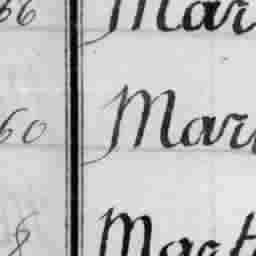 66 Mar
60 Mari
8 Mart